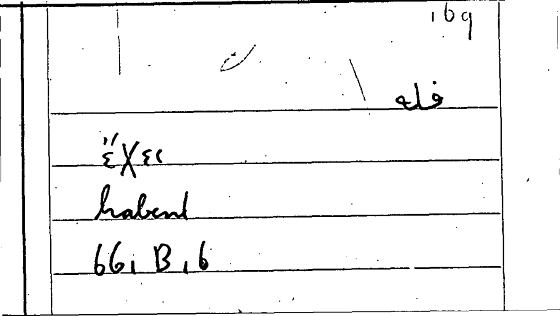 169
فله
ἔχει
habent
66, B, 6